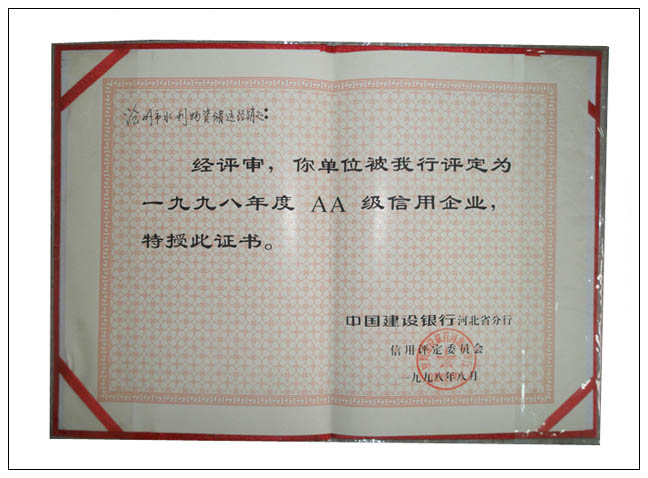 沧州市水利物资储运经销处:
经评审，你单位被我行评定为
一九九八年度 AA 级信用企业，
特授此证书。
中国建设银行河北省分行
信用评定委员会
一九九八年八月